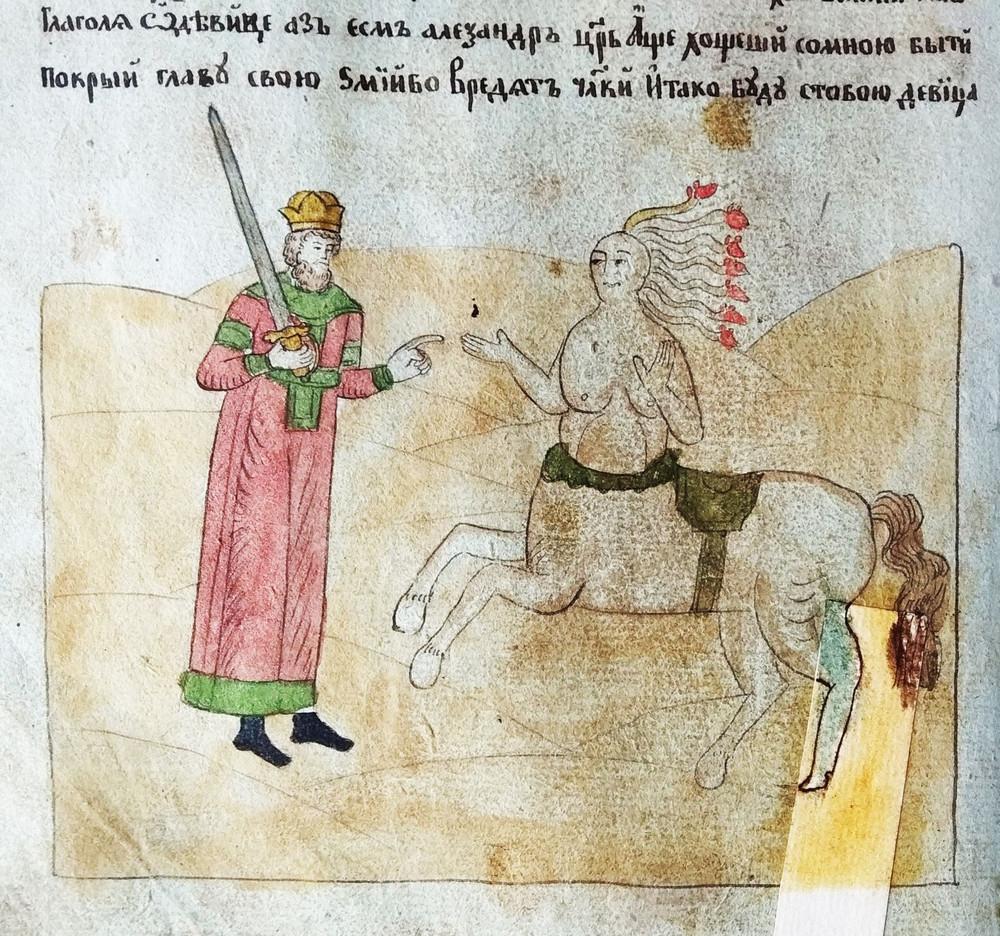 Глаголя азъ есмъ алеѯандръ цр҃ь Аще хощеши сомною быти
Покрый главꙋ свою Ѕмїйбо вредятъ И тако бꙋдꙋ стобою девїца